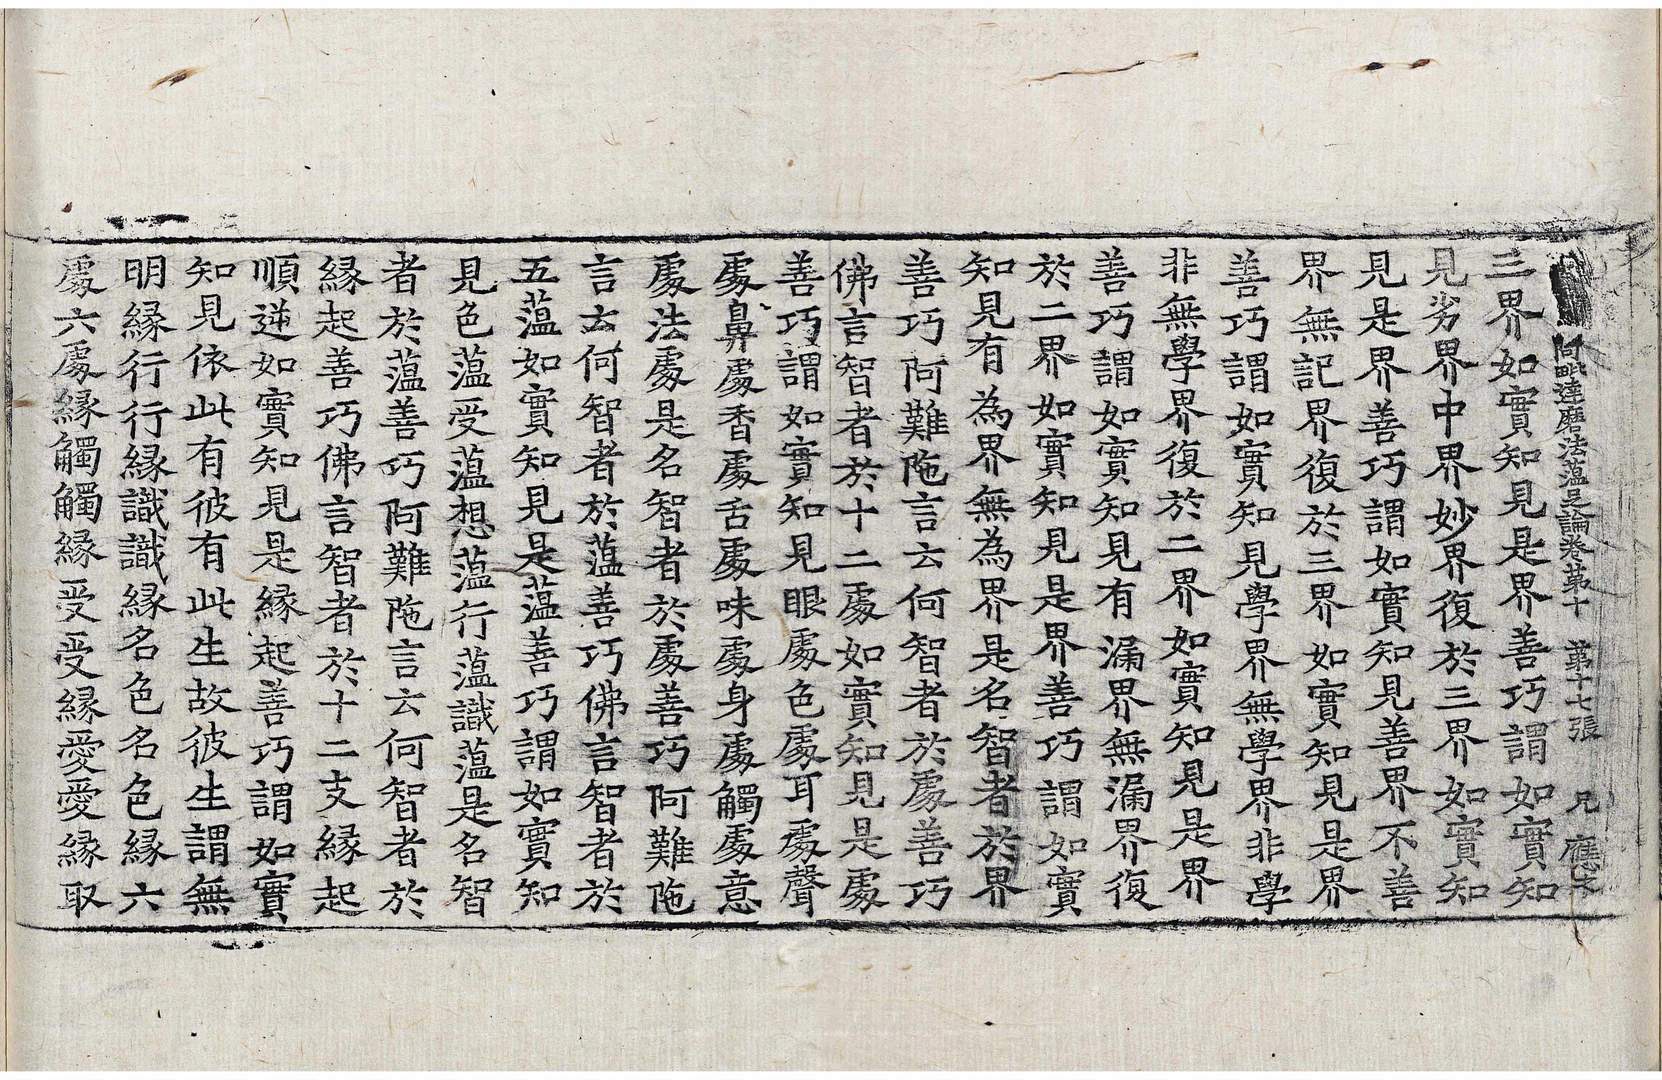 阿毗達磨法蘊足論卷第十　第十七張　兄　應才
三界如實知見是界善巧謂如實知
見劣界中界妙界復於三界如實知
見是界善巧謂如實知見善界不善
界無記界復於三界如實知見是界
善巧謂如實知見學界無學界非學
非無學界復於二界如實知見是界
善巧謂如實知見有漏界無漏界復
於二界如實知見是界善巧謂如實
知見有為界無為界是名智者於界
善巧阿難陁言云何智者於處善巧
佛言智者於十二處如實知見是處
善巧謂如實知見眼處色處耳處聲
處鼻處香處舌處味處身處觸處意
處法處是名智者於處善巧阿難陁
言云何智者於蘊善巧佛言智者於
五蘊如實知見是蘊善巧謂如實知
見色蘊受蘊想蘊行蘊識蘊是名智
者於蘊善巧阿難陁言云何智者於
緣起善巧佛言智者於十二支緣起
順逆如實知見是緣起善巧謂如實
知見依此有彼有此生故彼生謂無
明緣行行緣識識緣名色名色緣六
處六處緣觸觸緣受受緣愛愛緣取